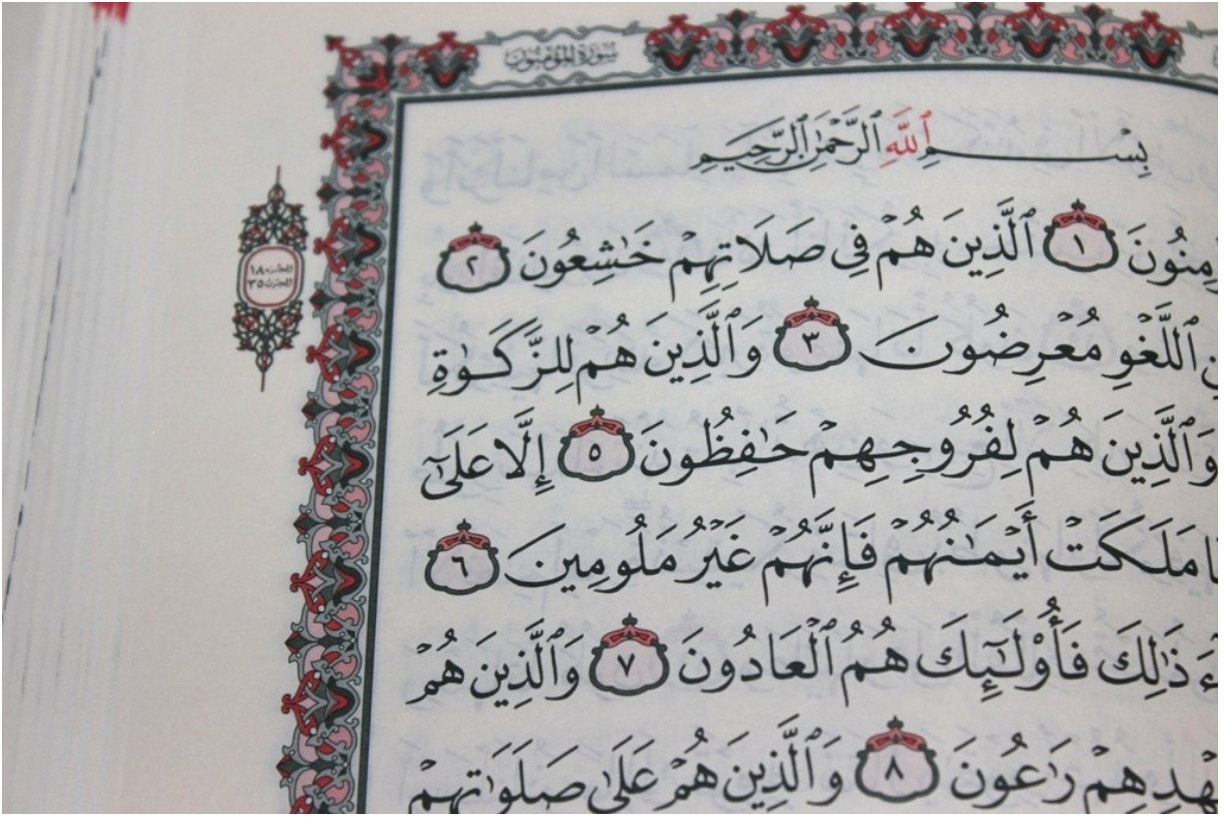 سُورَةُ المُؤْمِنُونَ
بِسْمِ ٱللَّهِ ٱلرَّحْمَٰنِ ٱلرَّحِيمِ
١ ٱلَّذِينَ هُمْ فِي صَلَاتِهِمْ خَٰشِعُونَ ٢
ٱللَّغْوِ مُعْرِضُونَ ٣ وَٱلَّذِينَ هُمْ لِلزَّكَوٰةِ
وَٱلَّذِينَ هُمْ لِفُرُوجِهِمْ حَٰفِظُونَ ٥ إِلَّا عَلَىٰٓ
مَلَكَتْ أَيْمَٰنُهُمْ فَإِنَّهُمْ غَيْرُ مَلُومِينَ ٦
ذَٰلِكَ فَأُو۟لَٰٓئِكَ هُمُ ٱلْعَادُونَ ٧ وَٱلَّذِينَ هُمْ
رَٰعُونَ ٨ وَٱلَّذِينَ هُمْ عَلَىٰ صَلَوَٰتِهِمْ
الجزء ١٨
الحزب ٣٥